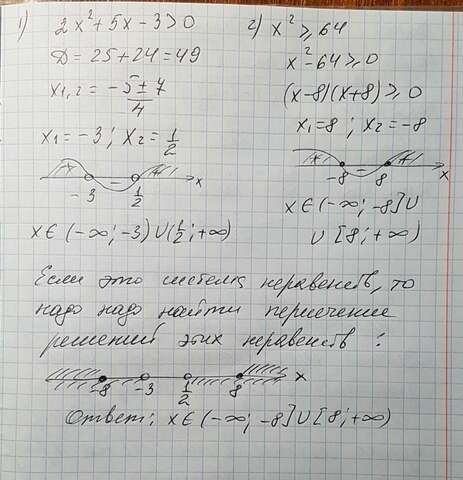 1) 2x² + 5x - 3 > 0
D = 25 + 24 = 49
x₁,₂ = (-5 ± 7)/4
x₁ = -3; x₂ = 1/2
+ - +
-3 1/2 x
x ∈ (-∞; -3) ∪ (1/2; +∞)
2) x² ≥ 64
x² - 64 ≥ 0
(x-8)(x+8) ≥ 0
x₁ = 8; x₂ = -8
+ - +
-8 8 x
x ∈ (-∞; -8] ∪
∪ [8; +∞)
Если это система неравенств, то
надо надо найти пересечение
решений этих неравенств:
-8 -3 1/2 8 x
Ответ: x ∈ (-∞; -8] ∪ [8; +∞)